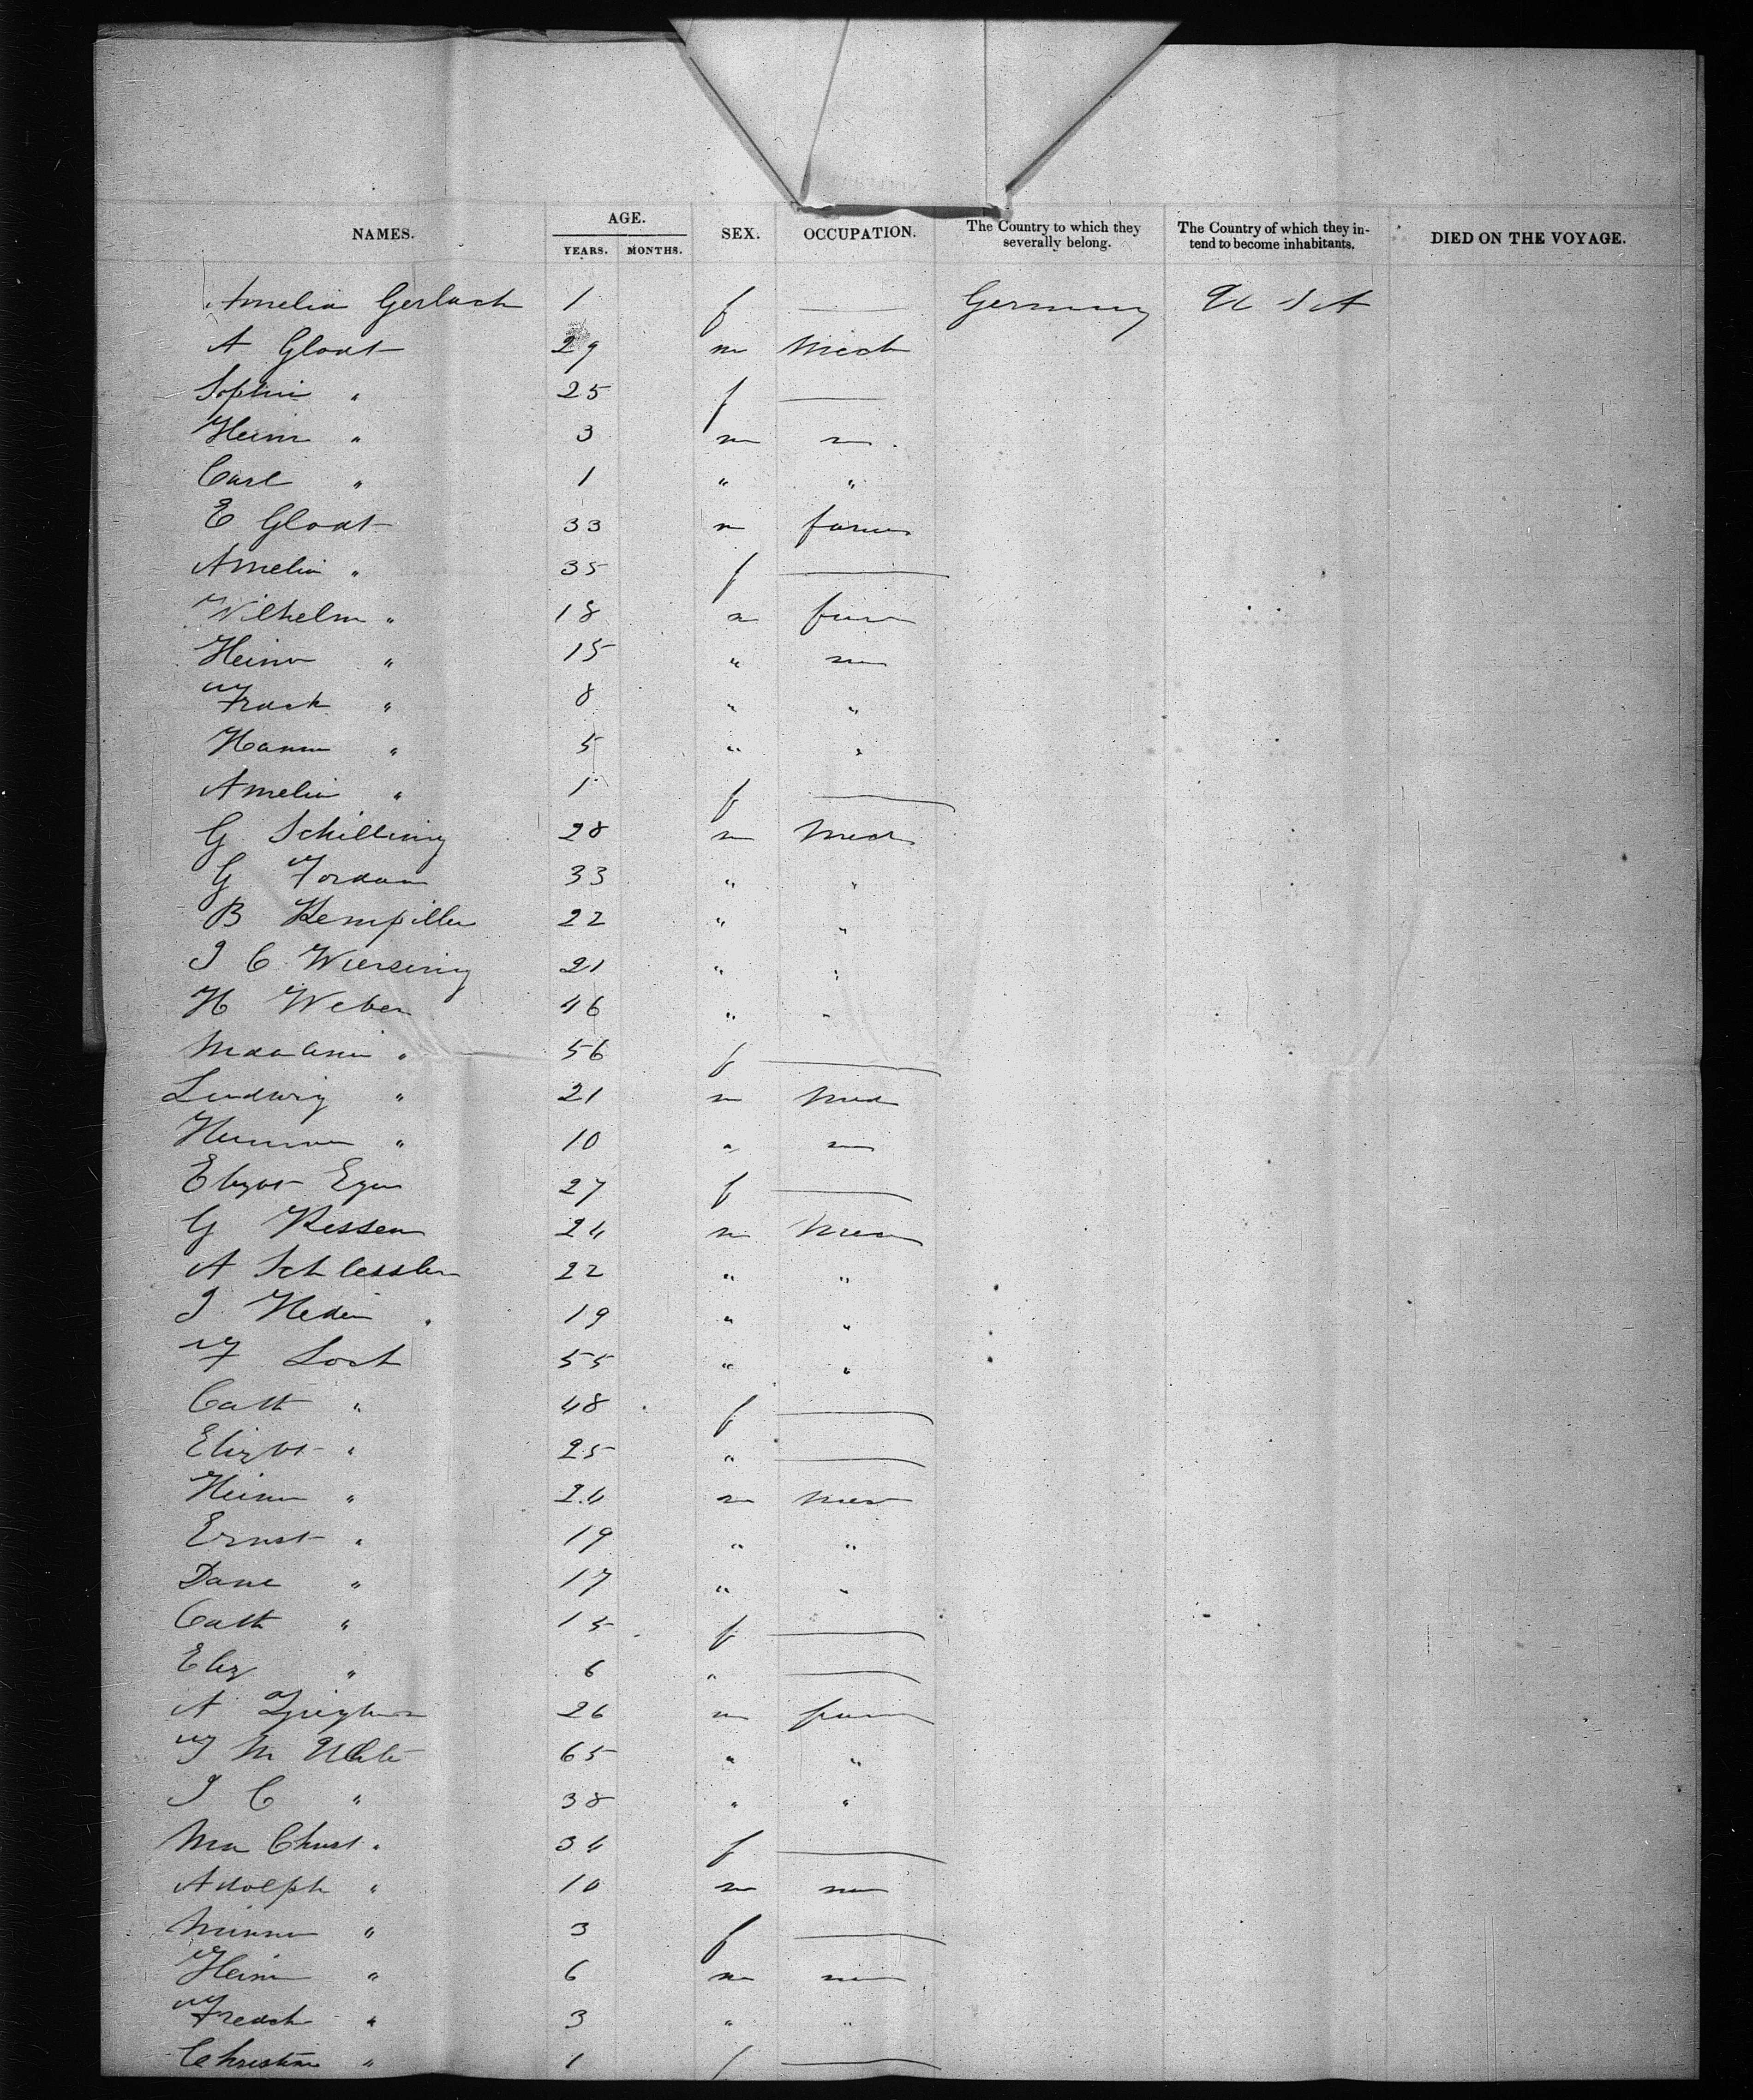 NAMES. AGE. YEARS. MONTHS. SEX. OCCUPATION. The Country to which they severally belong. The Country of which they intend to become inhabitants. DIED ON THE VOYAGE.
Amelia Gerlach 1 f — Germany U S A
A Gloat 29 m Mech
Sophie " 25 f —
Heinr " 3 m
Carl " 1 " "
E Gloat 33 m farmer
Amelia " 35 f —
Wilhelm " 18 m farm
Heinr " 15 "
" 8 " "
Hanne " 5 " "
Amelia " 1 f —
G Schilling 28 m Mech
G Jordan 33 " "
B Kempiller 22 " "
J C Wiersing 21 " "
H Weber 46 " "
" 56 f —
Ludwig " 21 m Mech
Herman " 10 "
Elizbt 27 f —
G Kessen 24 m Mech
A Schlessler 22 " "
J 19 " "
F Lost 55 " "
Cath " 48 f —
Elizbt " 25 " —
Heinr " 24 m Mech
Ernst " 19 " "
Dane " 17 " "
Cath " 15 f —
Eliz " 6 " —
A 26 m farm
65 " "
J C " 38 " "
Ma Christ " 34 f —
Adolph " 10 m
Minna " 3 f —
Heinr " 6 m
" 3 " "
Christine " 1 f —